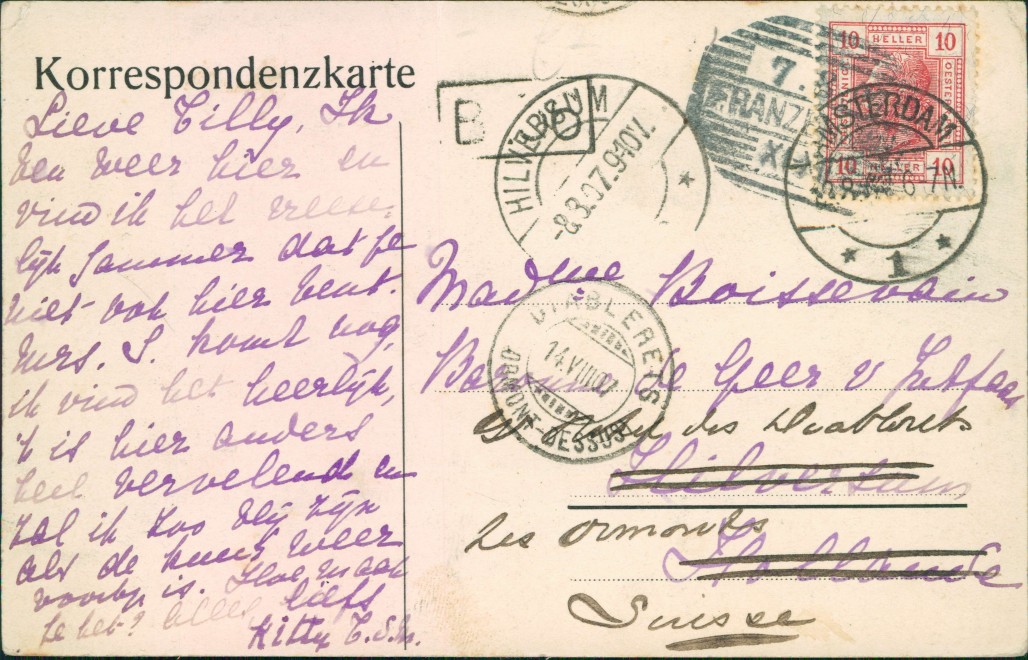 Korrespondenzkarte
Lieve Tilly, Ik
ben weer hier en
vind ik het vreese-
lijk jammer dat je
niet ook hier bent.
Mrs. S. komt nog,
ik vind het heerlijk,
't is hier anders
heel vervelend en
zal ik zoo blij zijn
als de kuur weer
voorbij is. Hoe maak
je het? Veel liefs
Kitty
B
6
HILVERSUM
-8.8.07.9-10V.
7.
FRANZE
10 HELLER 10
10 HELLER 10
AMSTERDAM
1
DIABLERETS
14.VIII.07
ORMONT-DESSUS
Madme Boissevain
Baronne de Geer v
Hotel des Diablerets
Hilversum
Les Ormonts
Hollande
Suisse